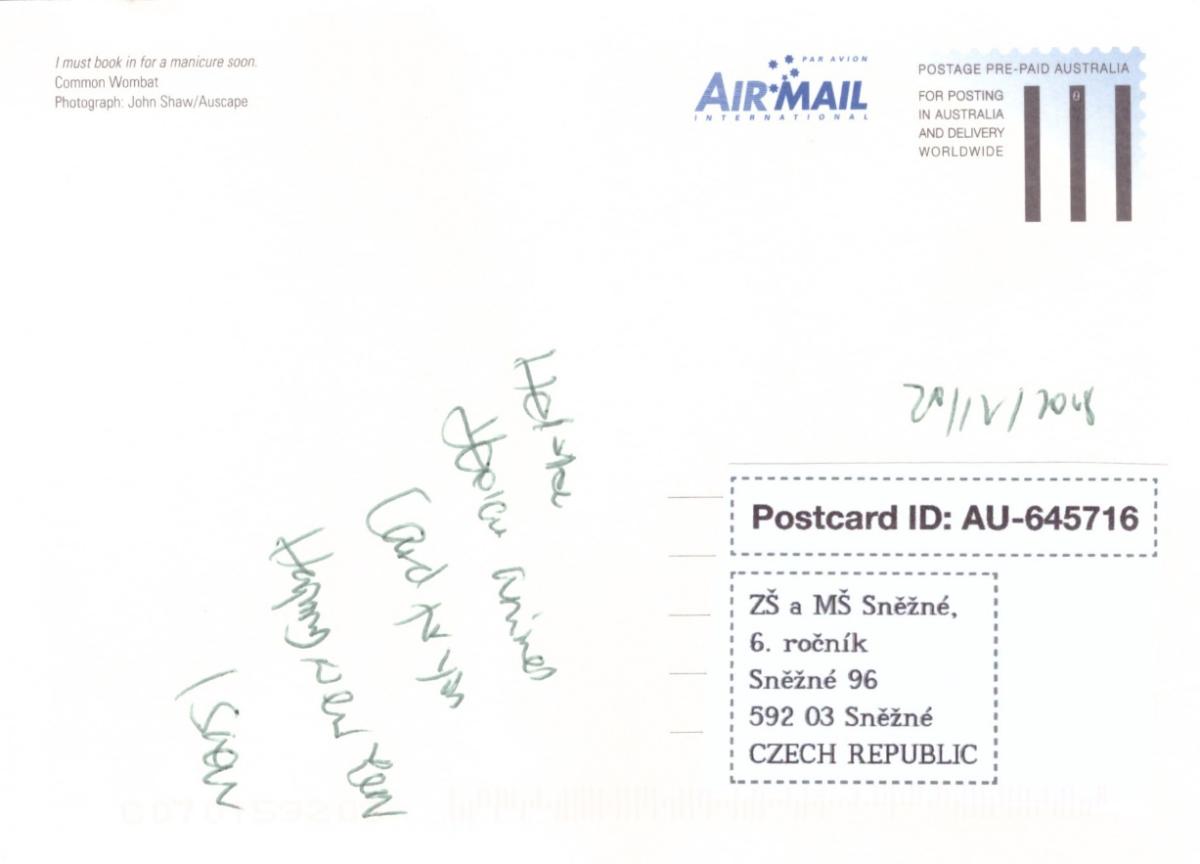 I must book in for a manicure soon.
Common Wombat
Photograph: John Shaw/Auscape
PAR AVION
AIR MAIL
INTERNATIONAL
POSTAGE PRE-PAID AUSTRALIA
FOR POSTING
IN AUSTRALIA
AND DELIVERY
WORLDWIDE
20/12/2018
Card
Happy New
Postcard ID: AU-645716
ZŠ a MŠ Sněžné,
6. ročník
Sněžné 96
592 03 Sněžné
CZECH REPUBLIC